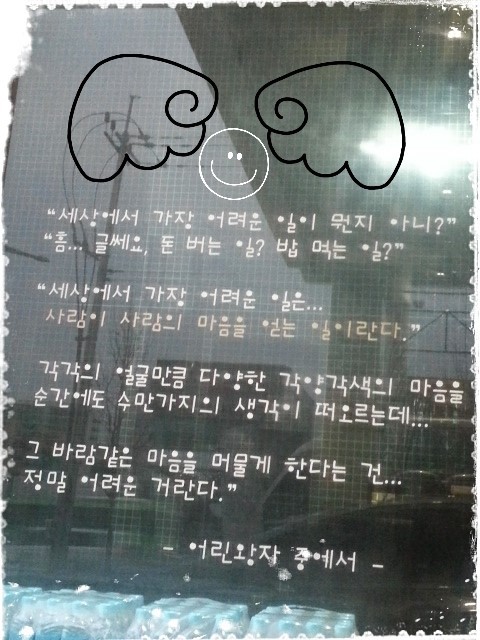 “세상에서 가장 어려운 일이 뭔지 아니?”
“흠... 글쎄요, 돈 버는 일? 밥 먹는 일?”
“세상에서 가장 어려운 일은...
사람이 사람의 마음을 얻는 일이란다.”
각각의 얼굴만큼 다양한 각양각색의 마음을
순간에도 수만가지의 생각이 떠오르는데...
그 바람같은 마음을 머물게 한다는 건...
정말 어려운 거란다.”
- 어린왕자 중에서 -